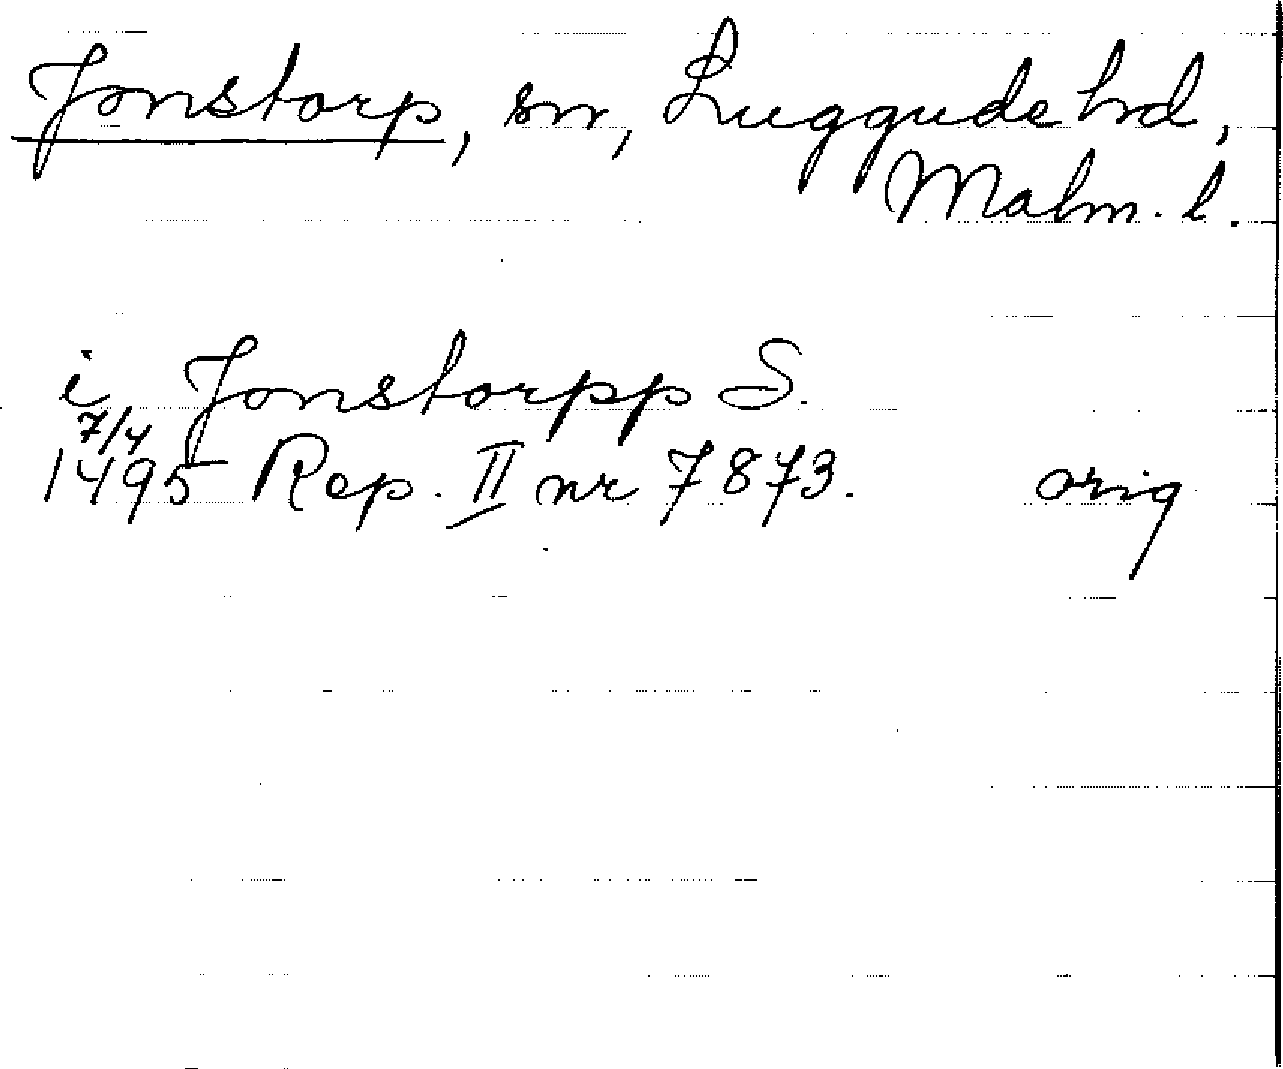 Jonstorp, sn, Luggude hd,
Malm. l.
i Jonstorpp S.
7/4
1495 Rep. II nr 7873. orig